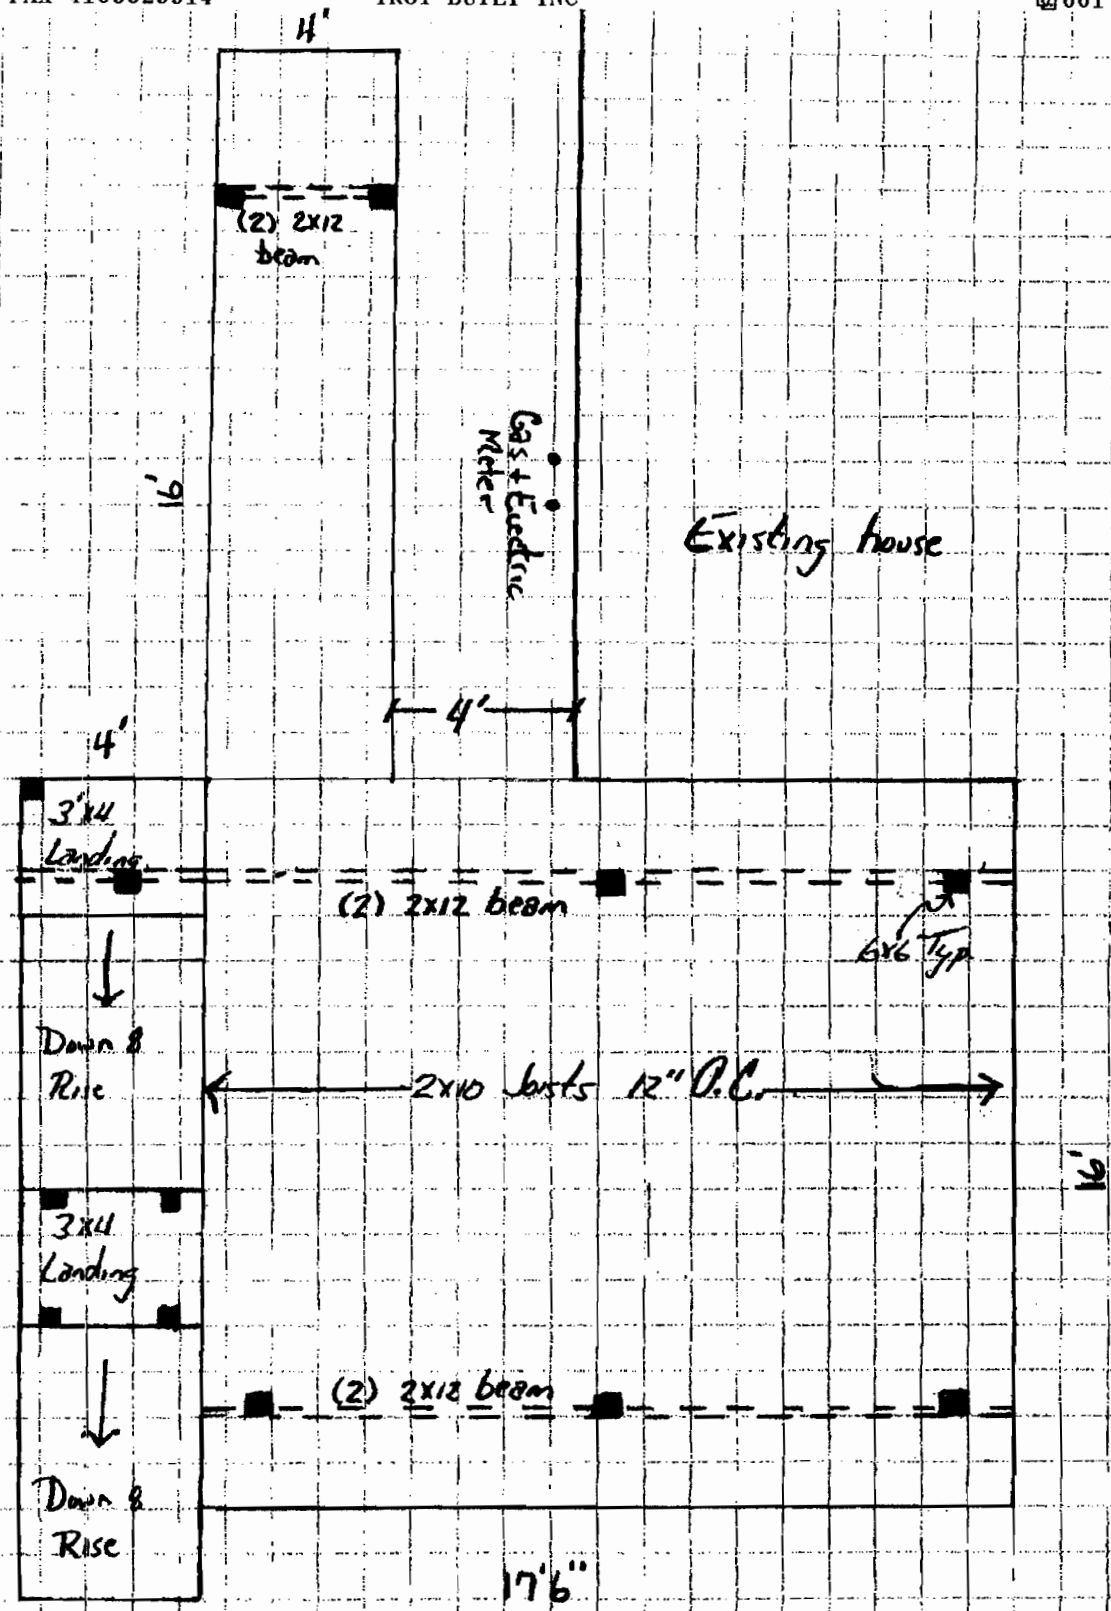 TROY BUILT INC
4'
(2) 2x12
beam
16'
Gas + Electric
Meter
Existing house
4'
4'
3'x4
Landing
(2) 2x12 beam
6x6 Typ.
Down 8
Rise
2x10 Joists 12" O.C.
16'
3x4
Landing
(2) 2x12 beam
Down 8
Rise
17'6"